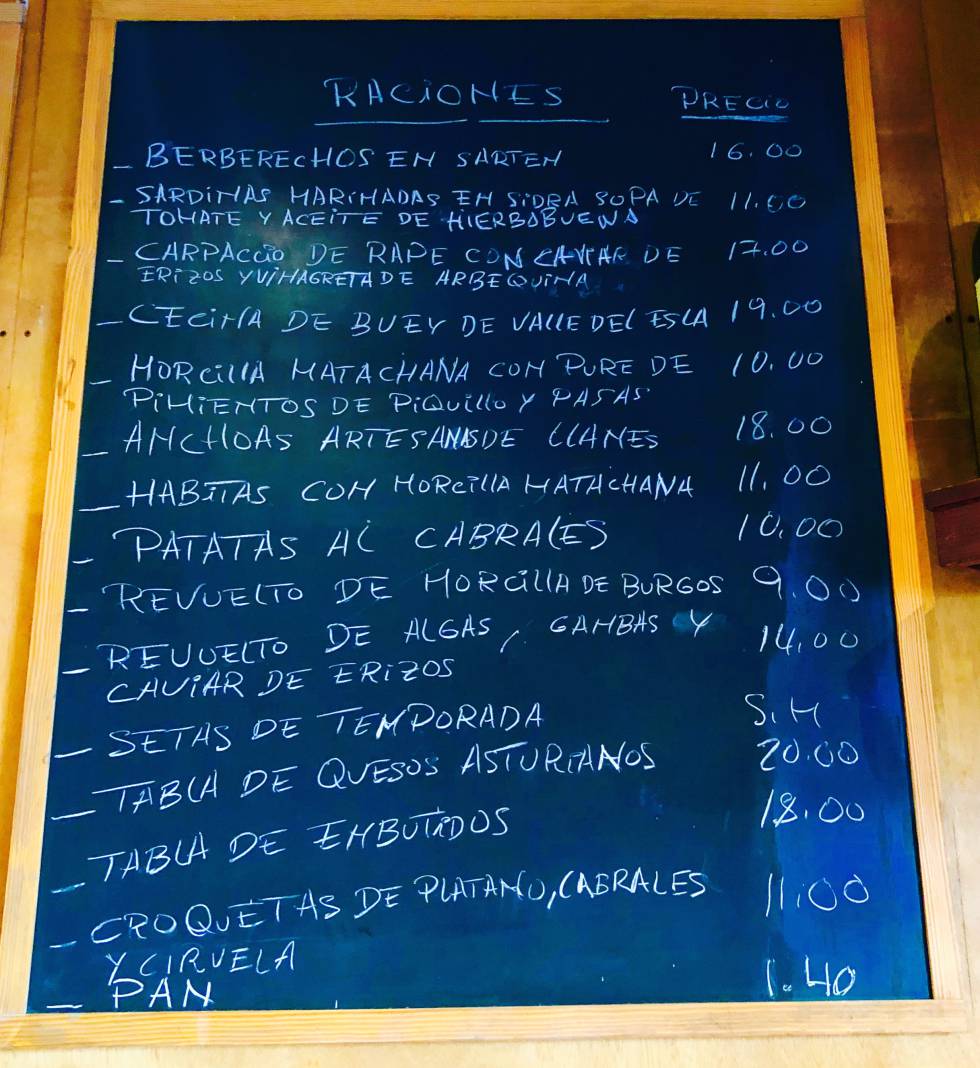 RACIONES PRECIO
- BERBERECHOS EN SARTEN 16.00
- SARDINAS MARINADAS EN SIDRA SOPA DE 11.00
TOMATE Y ACEITE DE HIERBABUENA
- CARPACCIO DE RAPE CON CAVIAR DE 17.00
ERIZOS Y VINAGRETA DE ARBEQUINA
- CECINA DE BUEY DE VALLE DEL ESLA 19.00
- MORCILLA MATACHANA CON PURE DE 10.00
PIMIENTOS DE PIQUILLO Y PASAS
- ANCHOAS ARTESANAS DE LLANES 18.00
- HABITAS CON MORCILLA MATACHANA 11.00
- PATATAS AL CABRALES 10.00
- REVUELTO DE MORCILLA DE BURGOS 9.00
- REVUELTO DE ALGAS, GAMBAS Y 14.00
CAVIAR DE ERIZOS
- SETAS DE TEMPORADA S.M
- TABLA DE QUESOS ASTURIANOS 20.00
- TABLA DE EMBUTIDOS 18.00
- CROQUETAS DE PLATANO, CABRALES 11.00
Y CIRUELA
- PAN 1.40